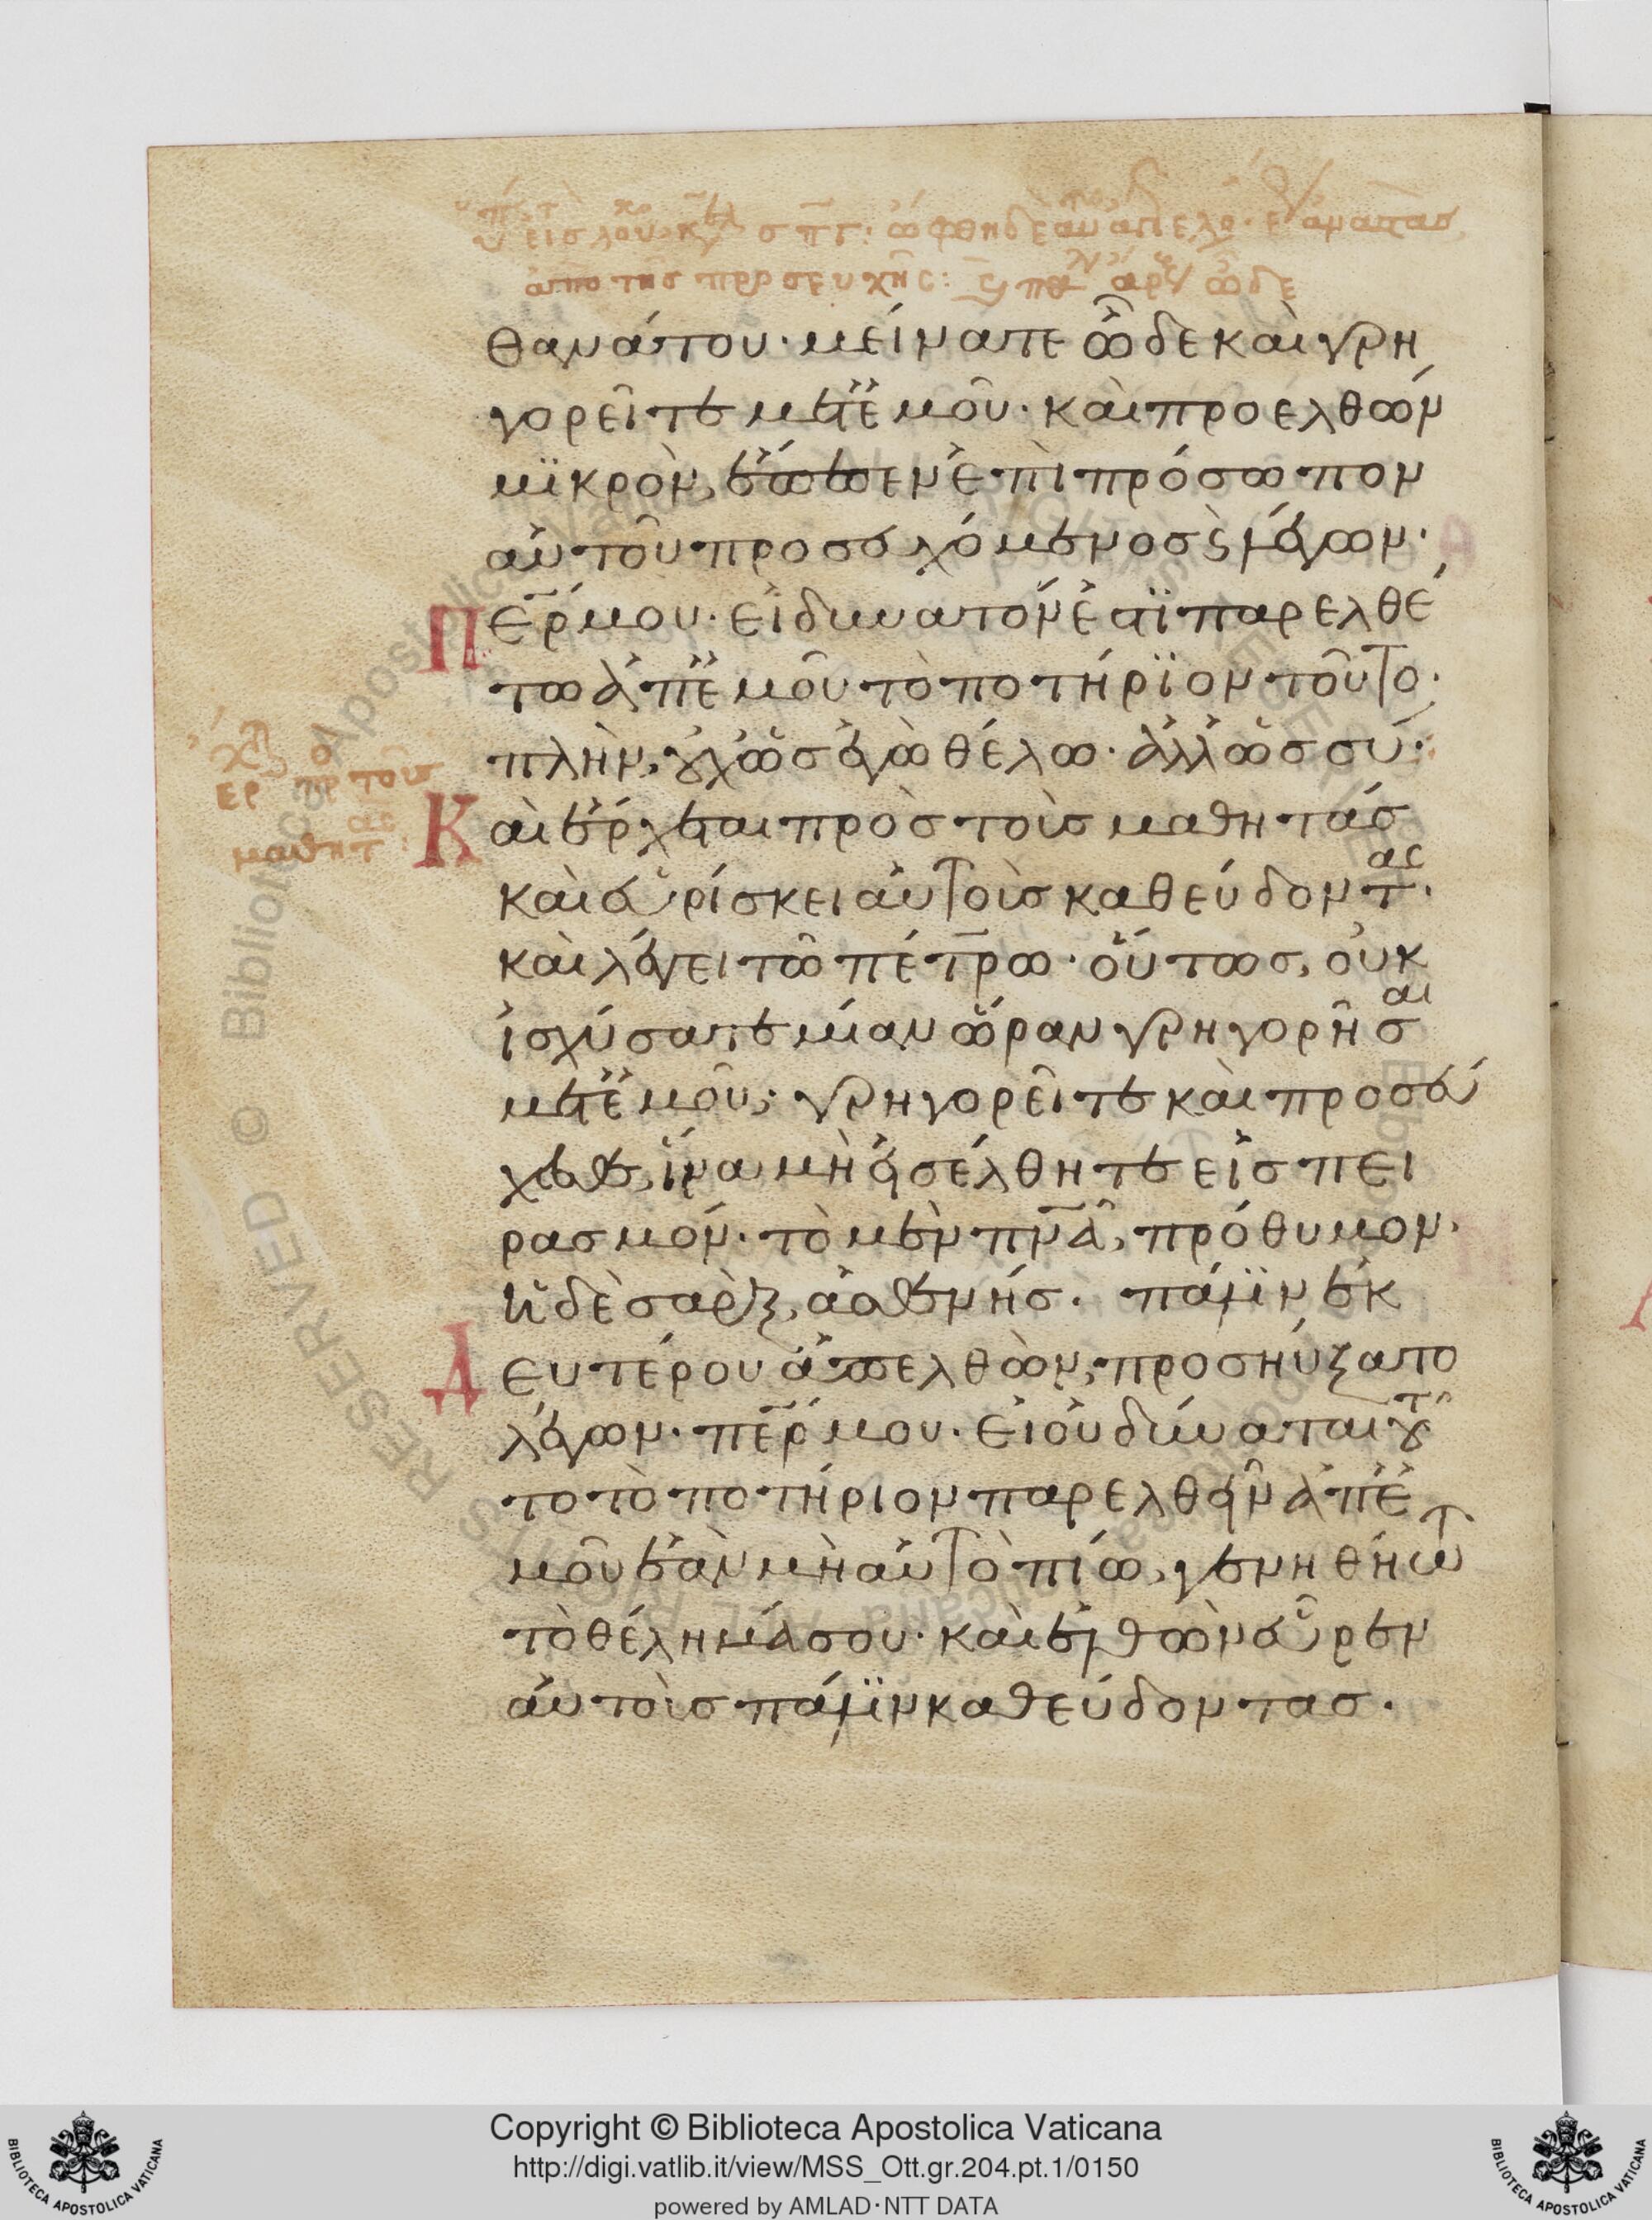 θανάτου· μείνατε ὧδε καὶ γρη
γορεῖτε μετ' ἐμοῦ· καὶ προελθὼν
μϊκρὸν, ἔπεσεν ἐπὶ πρόσωπον
αὐτοῦ προσευχόμενος ϛ λέγων·
Πε̅ρ μου· εἰ δυνατόν ἐστϊ παρελθέ
τω ἀπ' ἐμοῦ τὸ ποτήρϊον τοῦτο·
πλὴν, οὐχ ὡς ἐγὼ θέλω· ἀλλ' ὡς σύ·
Καὶ ἔρχεται πρὸς τοὺς μαθητάς
καὶ εὑρίσκει αὐτοὺς καθεύδοντας·
καὶ λέγει τῶ πέτρω· οὕτως, οὐκ
ἰσχύσατε μίαν ὥραν γρηγορῆσαι
μετ' ἐμοῦ; γρηγορεῖτε καὶ προσεύ
χεσθε, ἵνα μὴ εἰσέλθητε εἰς πει
ρασμόν· τὸ μὲν πν̅α, πρόθυμον·
ἡ δὲ σὰρξ, ἀσθενής· πάλϊν ἐκ
Δευτέρου ἀπελθὼν, προσηύξατο
λέγων· πε̅ρ μου· εἰ οὐ δύναται τοῦ
το τὸ ποτήριον παρελθεῖν ἀπ' ἐ
μοῦ ἐὰν μὴ αὐτὸ πίω, γενηθήτω
τὸ θέλημά σου· καὶ ἐλθὼν εὗρεν
αὐτοὺς πάλϊν καθεύδοντας·
ὤφθη δὲ αὐτῶ ἄγγελο· ἀναστὰς
ἀπὸ τῆς προσευχῆς: ὧδε
ἔρ πρ τοὺς
μαθητ:
Copyright © Biblioteca Apostolica Vaticana
http://digi.vatlib.it/view/MSS_Ott.gr.204.pt.1/0150
powered by AMLAD·NTT DATA
BIBLIOTECA APOSTOLICA VATICANA
BIBLIOTECA APOSTOLICA VATICANA